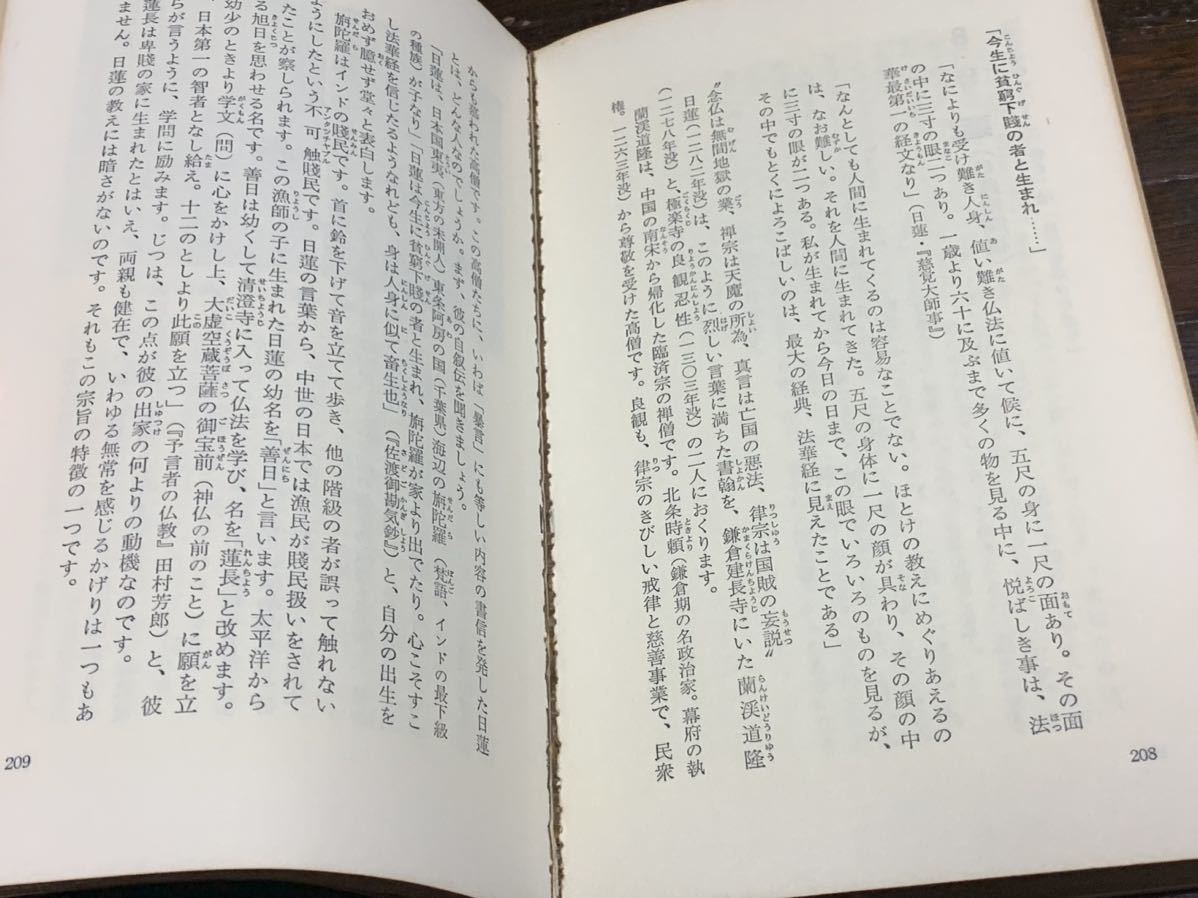 「今生に貧窮下賤の者と生まれ……」
「なによりも受け難き人身、値い難き仏法に値いて候に、五尺の身に一尺の面あり。その面
の中に三寸の眼二つあり。一歳より六十に及ぶまで多くの物を見る中に、悦ばしき事は、法
華最第一の経文なり」（日蓮・『慈覚大師事』）
「なんとしても人間に生まれてくるのは容易なことでない。ほとけの教えにめぐりあえるの
は、なお難しい。それを人間に生まれてきた。五尺の身体に一尺の顔が具わり、その顔の中
に三寸の眼が二つある。私が生まれてから今日の日まで、この眼でいろいろのものを見るが、
その中でもとくによろこばしいのは、最大の経典、法華経に見えたことである」
〝念仏は無間地獄の業、禅宗は天魔の所為、真言は亡国の悪法、律宗は国賊の妄説〟
日蓮（一二八二年没）は、このように烈しい言葉に満ちた書翰を、鎌倉建長寺にいた蘭渓道隆
（一二七八年没）と、極楽寺の良観忍性（一三〇三年没）の二人におくります。
蘭渓道隆は、中国の南宋から帰化した臨済宗の禅僧です。北条時頼（鎌倉期の名政治家。幕府の執
権。一二六三年没）から尊敬を受けた高僧です。良観も、律宗のきびしい戒律と慈善事業で、民衆
208
からも慕われた高僧です。この高僧たちに、いわば「暴言」にも等しい内容の書信を発した日蓮
とは、どんな人なのでしょうか。まず、彼の自叙伝を聞きましょう。
「日蓮は、日本国東夷（東方の未開人）東条阿房の国（千葉県）海辺の旃陀羅（梵語、インドの最下級
の種族）が子なり」「日蓮は今生に貧窮下賤の者と生まれ、旃陀羅が家より出でたり。心こそすこ
し法華経を信じたるようなれども、身は人身に似て畜生也」（『佐渡御勘気鈔』）と、自分の出生を
おめず臆せず堂々と表白します。
旃陀羅はインドの賤民です。首に鈴を下げて音を立てて歩き、他の階級の者が誤って触れない
ようにしたという不可触賤民です。日蓮の言葉から、中世の日本では漁民が賤民扱いをされて
たことが察られます。この漁師の子に生まれた日蓮の幼名を「善日」と言います。太平洋から
る旭日を思わせる名です。善日は幼くして清澄寺に入って仏法を学び、名を「蓮長」と改めます。
幼少のときより学文（問）に心をかけし上、大虚空蔵菩薩の御宝前（神仏の前のこと）に願を立
日本第一の智者となし給え。十二のとしより此願を立つ」（『予言者の仏教』田村芳郎）と、彼
らが言うように、学問に励みます。じつは、この点が彼の出家の何よりの動機なのです。
蓮長は卑賤の家に生まれたとはいえ、両親も健在で、いわゆる無常を感じるかげりは一つもあ
ません。日蓮の教えには暗さがないのです。それもこの宗旨の特徴の一つです。
209